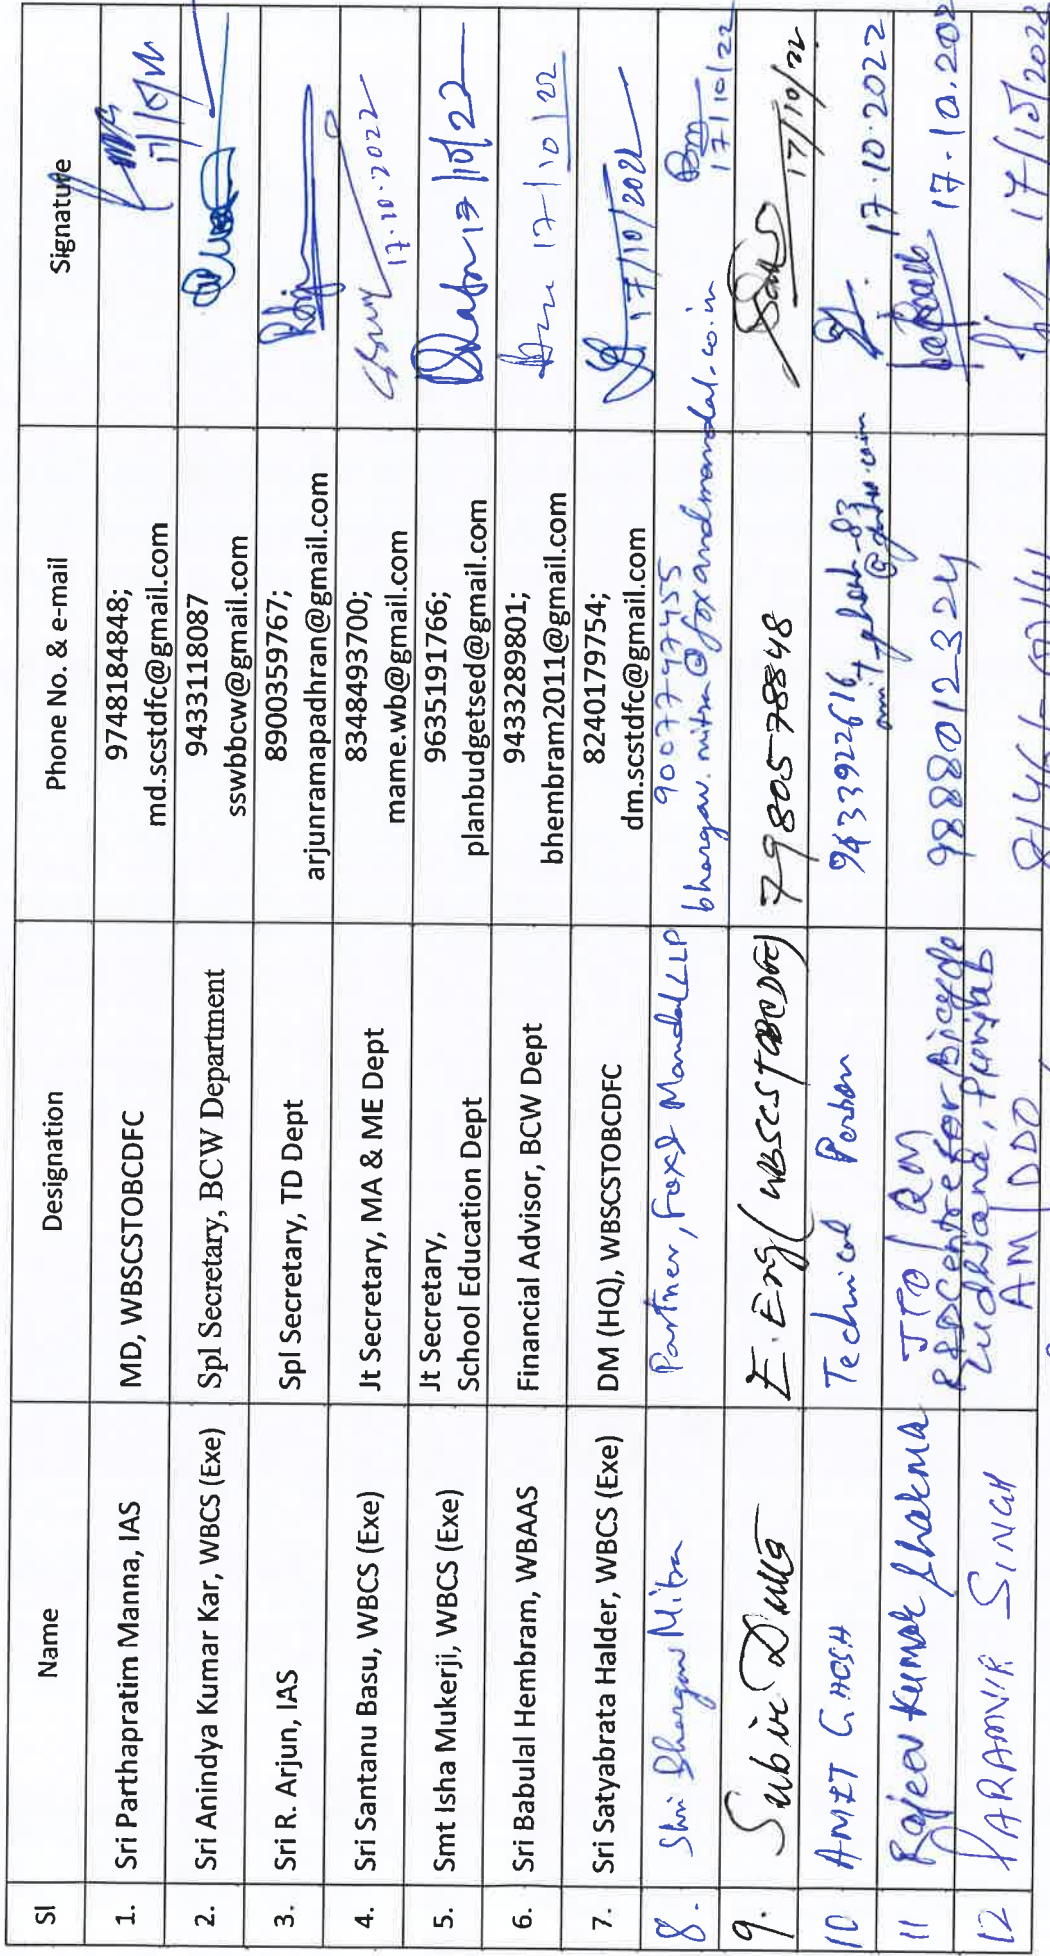 Sl Name Designation Phone No. & e-mail Signature
1. Sri Parthapratim Manna, IAS MD, WBSCSTOBCDFC 9748184848;
md.scstdfc@gmail.com
2. Sri Anindya Kumar Kar, WBCS (Exe) Spl Secretary, BCW Department 9433118087
sswbbcw@gmail.com
3. Sri R. Arjun, IAS Spl Secretary, TD Dept 8900359767;
arjunramapadhran@gmail.com
4. Sri Santanu Basu, WBCS (Exe) Jt Secretary, MA & ME Dept 8348493700; 17.10.2022
mame.wb@gmail.com
5. Smt Isha Mukerji, WBCS (Exe) Jt Secretary, 9635191766; 17/10/22
School Education Dept planbudgetsed@gmail.com
6. Sri Babulal Hembram, WBAAS Financial Advisor, BCW Dept 9433289801; 17/10/22
bhembram2011@gmail.com
7. Sri Satyabrata Halder, WBCS (Exe) DM (HQ), WBSCSTOBCDFC 8240179754; 17/10/2022
dm.scstdfc@gmail.com
8. Shri Bhargav Mitra Partner, Fox & Mandal LLP 9007797455 17/10/22
bhargav.mitra@foxandmandal.co.in
9. Subir Dutta E. Eng (WBSCSTOBCDFC) 7980578848 17/10/22
10 AMIT GHOSH Technical Person 9433922616 17.10.2022
11 Rajeev Kumar Sharma JTO / QM 9888012324 17.10.202
R&D Centre for Bicycle
Ludhiana, Punjab
12 PARAMVIR SINGH AM/DDO 17/10/2022